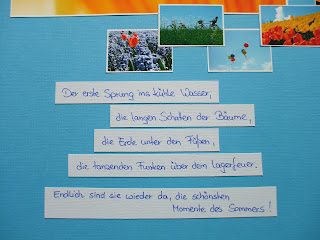 Der erste Sprung ins kühle Wasser,
die langen Schatten der Bäume,
die Erde unter den Füßen,
die tanzenden Funken über dem Lagerfeuer.
Endlich sind sie wieder da, die schönsten
Momente des Sommers!